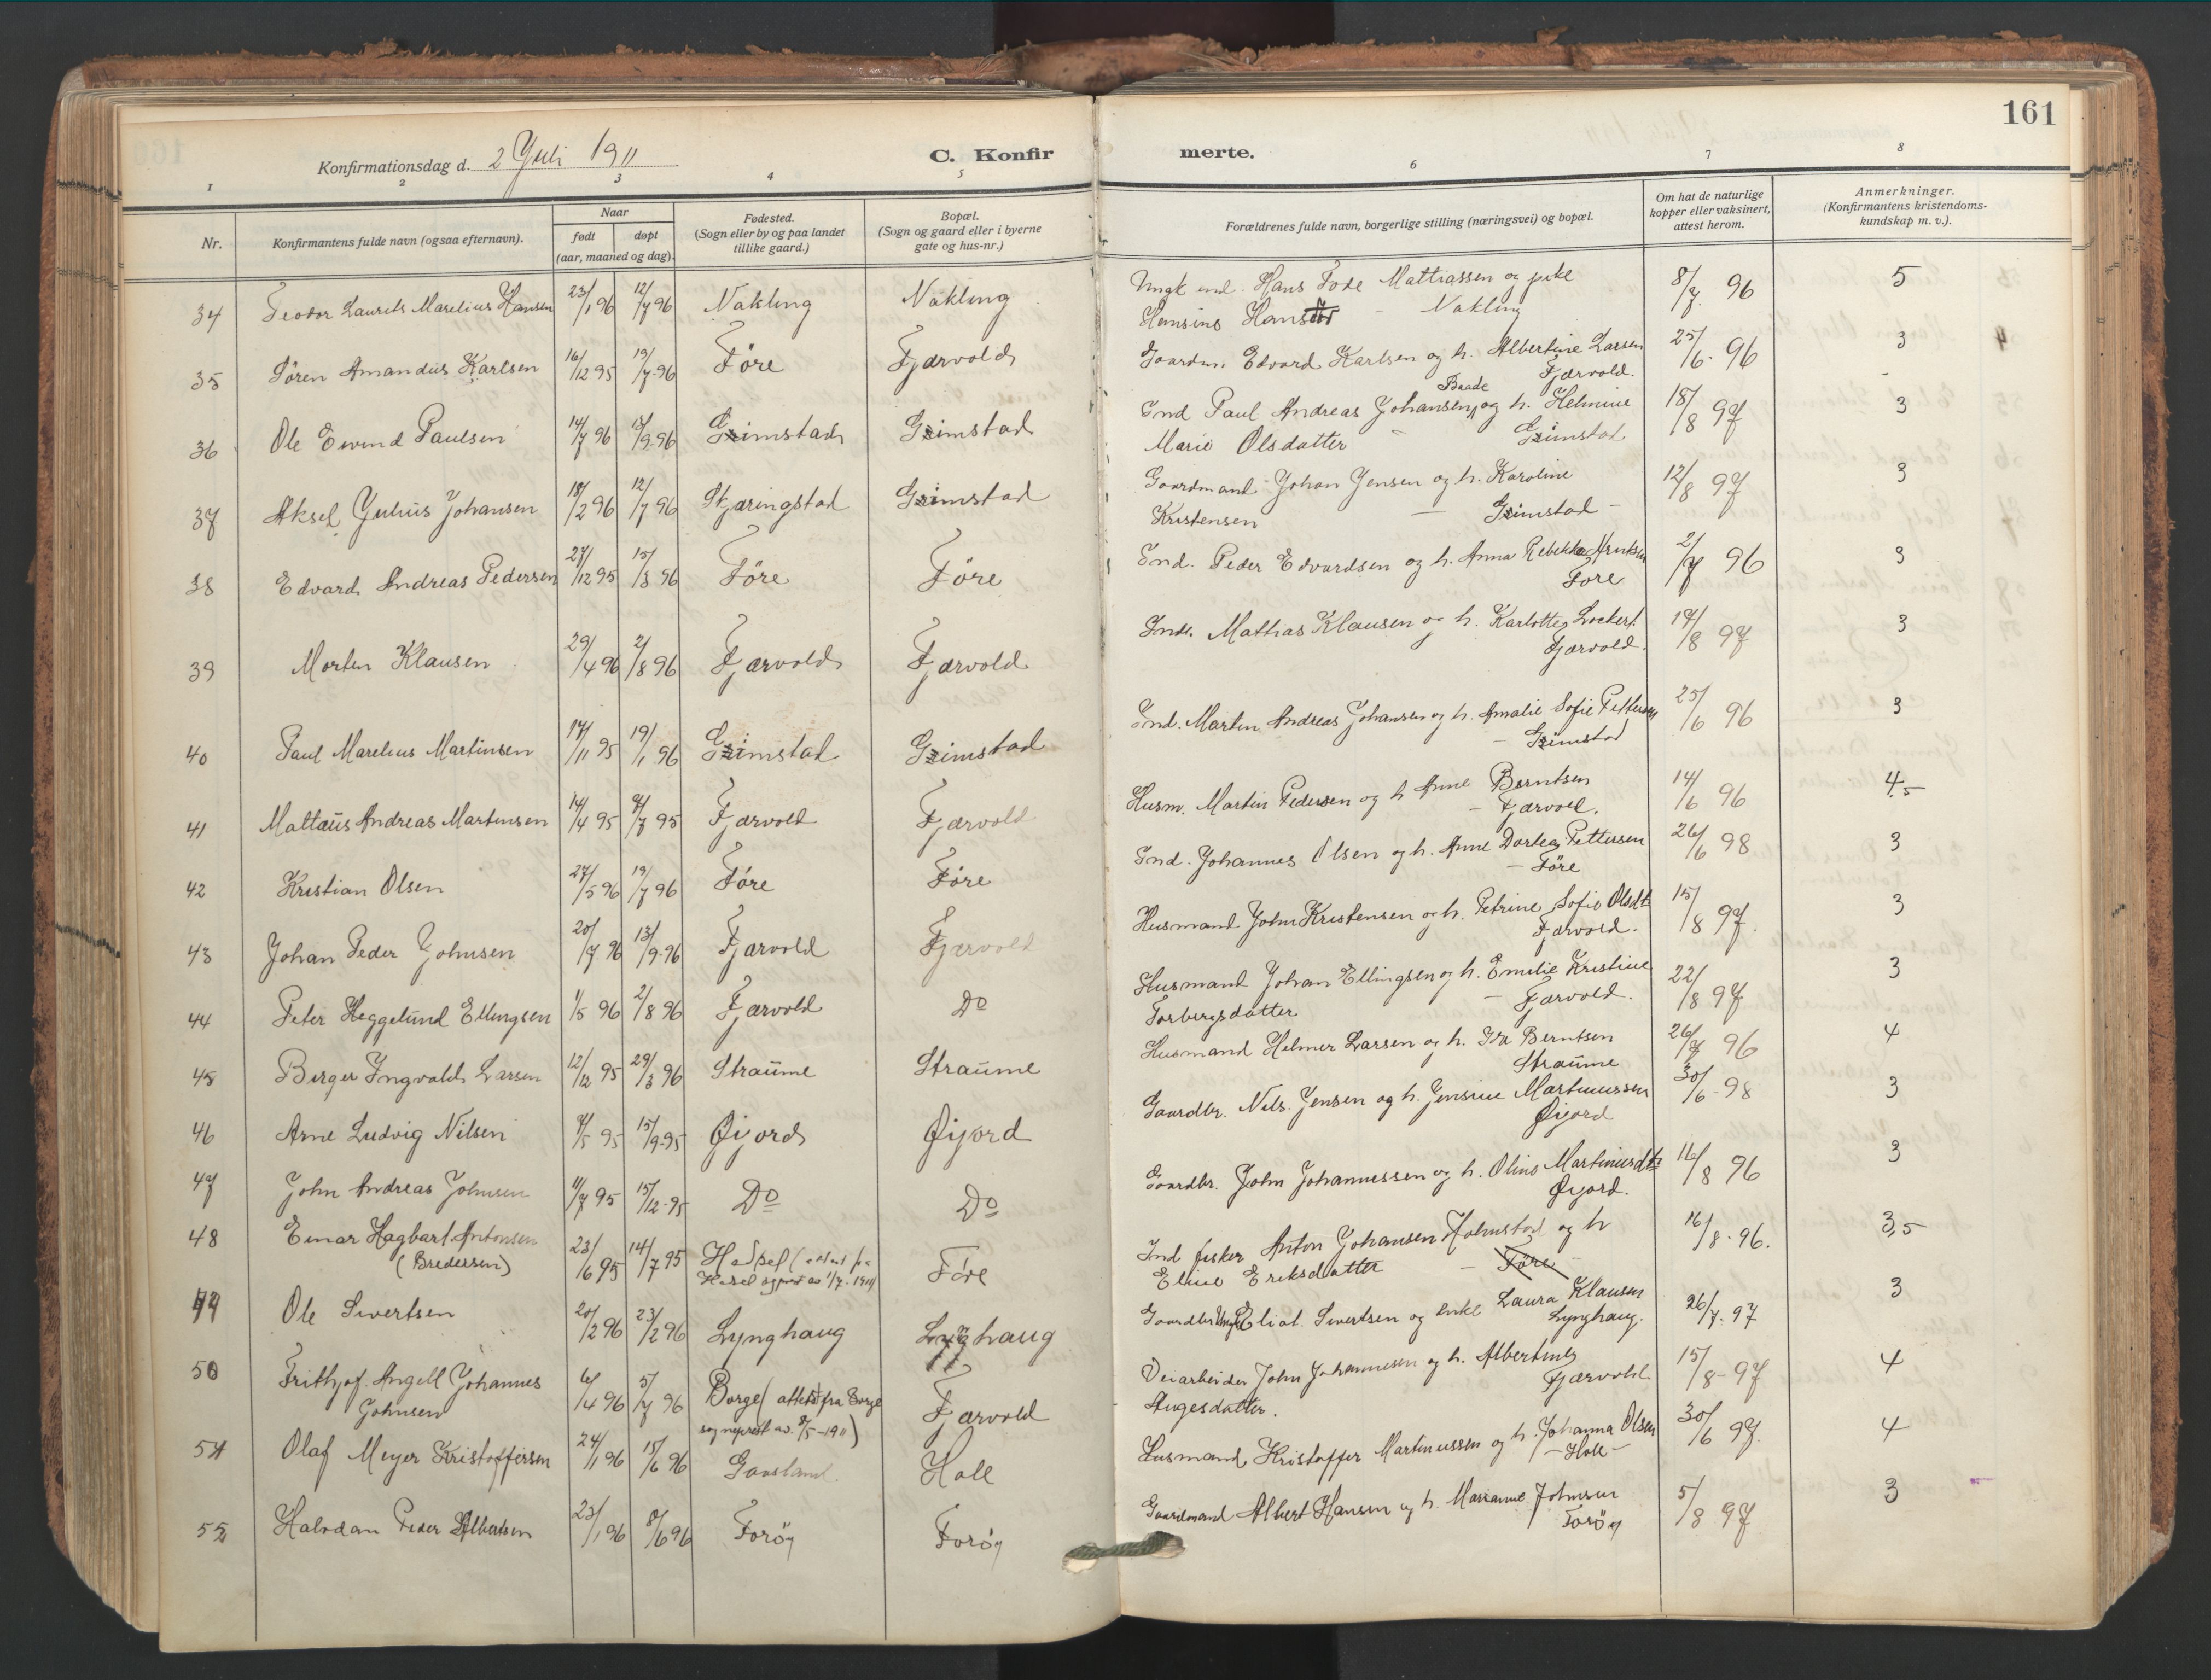 161
Konfirmationsdag d. 2 Juli 1911
C. Konfir merte.
1 2 3 4 5 6 7 8
Nr.
Konfirmantens fulde navn (ogsaa efternavn).
Naar
født døpt
(aar, maaned og dag).
Fødested.
(Sogn eller by og paa landet
tillike gaard.)
Bopæl.
(Sogn og gaard eller i byerne
gate og hus-nr.)
Forældrenes fulde navn, borgerlige stilling (næringsvei) og bopæl.
Om hat de naturlige
kopper eller vaksinert,
attest herom.
Anmerkninger.
(Konfirmantens kristendoms-
kundskap m. v.).
34 Teodor Laurits Marelius Hansen 23/1 96 12/7 96 Nakling Nakling Ungk. Hans Tode Mattiassen og pike 8/7. 96 5
Hansine Hans - Nakling
35 Sören Amandus Karlsen 16/12 95 19/7.96 Före Fjærvold Gaardm. Edvard Karlsen og h. Albertine Larsen 25/6. 96 3
Fjærvold.
36 Ole Eivind Paulsen 14/7 96 13/9.96 Grimstad Grimstad Ind Paul Andreas Johansen, Baade og h. Helmine 18/8 97 3
Marie Olsdatter - Grimstad
37 Aksel Julius Johansen 18/2 96 12/7 96 Stjæringstad Grimstad Gaardmand Johan Jensen og h. Karoline 12/8 97 3
Kristensen - Grimstad -
38 Edvard Andreas Pedersen 27/12 95 15/3 96 Före Före Ind. Peder Edvardsen og h. Anna Rebekka 2/7 96 3
Före
39 Morten Klausen 29/4 96 2/8 96 Fjærvold Fjærvold Inds. Mathias Klausen og h. Karlotte Lockert 17/8 97 3
Fjærvold.
40 Paul Marelius Martinsen 17/11 95 19/1 96 Grimstad Grimstad Ind. Martin Andreas Johansen og h. Amalie Sofie Pettersen 25/6 96 3
- Grimstad
41 Mattæus Andreas Martinsen 14/4 95 7/7 95 Fjærvold Fjærvold Husm. Martin Pedersen og h Anne Berntsen 14/6 96 4,5
- Fjærvold.
42 Kristian Olsen 27/5 96 19/7 96 Före Före Ind. Johannes Olsen og h. Anne Dortea Pettersen 26/6 98 3
- Före
43 Johan Peder Johnsen 20/7 96 13/9.96 Fjærvold Fjærvold Husmand John Kristensen og h. Petrine Sofie Olsdt 15/8 97. 3
Fjærvold.
44 Peter Heggelund Ellingsen 1/5 96 2/8 96 Fjærvold Do Husmand Johan Ellingsen og h. Emilie Kristine 22/8 97 3
Torbergsdatter - Fjærvold.
45 Birger Ingvald Larsen 12/12 95 29/3 96 Straume Straume Husmand Helmer Larsen og h. Ida Berntsen 26/7 96 4
Straume
46 Arne Ludvig Nilsen 4/5 95 15/9.95 Øijord Øijord Gaardbr. Nils. Jensen og h. Jensine Martinussen 30/6.98 3
Øijord
47 John Andreas Johnsen 11/7 95 15/12.95 Do Do Gaardbr. John Johannessen og h. Oline Martinusdt 16/8 96 3
Øijord.
48 Einar Hagbart Antonsen 23/6 95 14/7 95 Hadsel ( Före Ind fisker Anton Johansen Holmstad og h 16/8.96. 3,5
(Bredersen) Hadsel sognepr av 1/7. 1911) Eline Eriksdatter - Före -
49 Ole Sivertsen 20/2 96 23/2 96 Lynghaug Lynghaug Gaardbr Eliot. Sivertsen og enke Laura Klausen 26/7.97 3
Lynghaug.
50 Frithjof. Angell Johannes 6/4 96 5/7 96 Borge( attest fra Borge Fjærvold Veiarbeider John Johannesen og h. Albertine 15/8-97 4
Johnsen sogneprest av. 8/5-1911) Angesdatter. Fjærvold
51 Olaf Meyer Kristoffersen 24/1 96 15/6 96 Gaasland. Holl Husmand Kristoffer Martinussen og h. Johanna Olsen 30/6 97. 4
- Holl -
52 Halvdan Peder Albertsen 23/1 96 8/6 96 Forøy Forøy Gaardmand Albert Hansen og h. Marianne Johnsen 5/8 97 3
Forøy